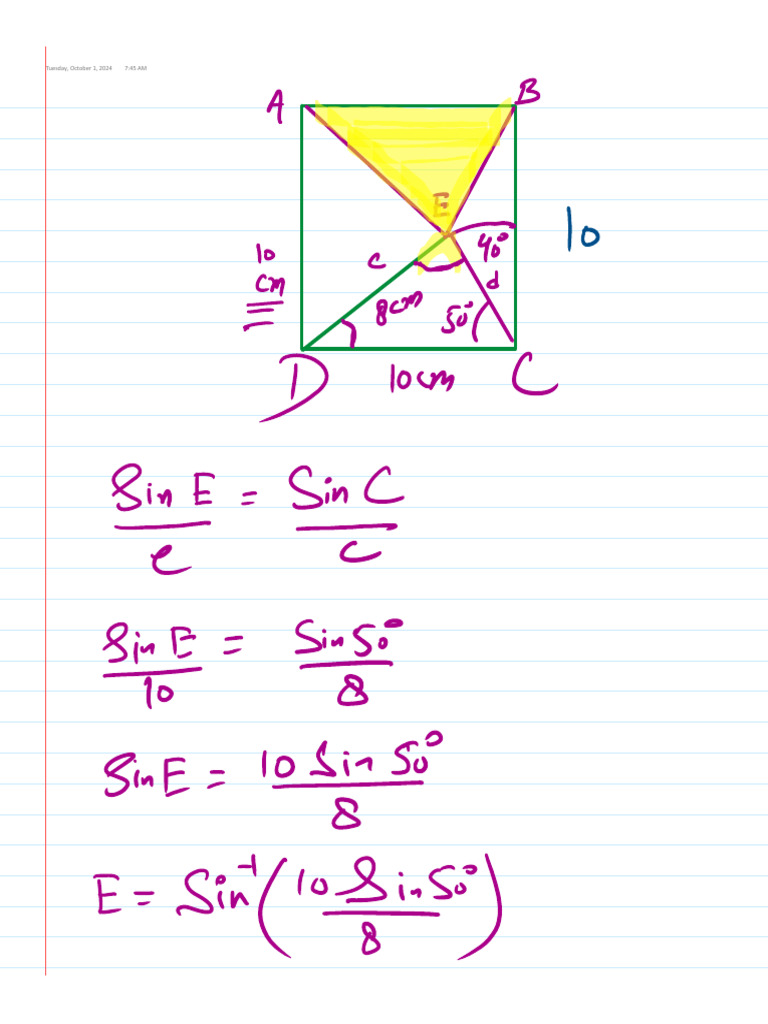 Tuesday, October 1, 2024 7:45 AM
A B
E
10
cm
c
8cm
40°
d
50°
10
D 10cm C
Sin E / e = Sin C / c
Sin E / 10 = Sin 50° / 8
Sin E = 10 Sin 50° / 8
E = Sin⁻¹ ( 10 Sin 50° / 8 )